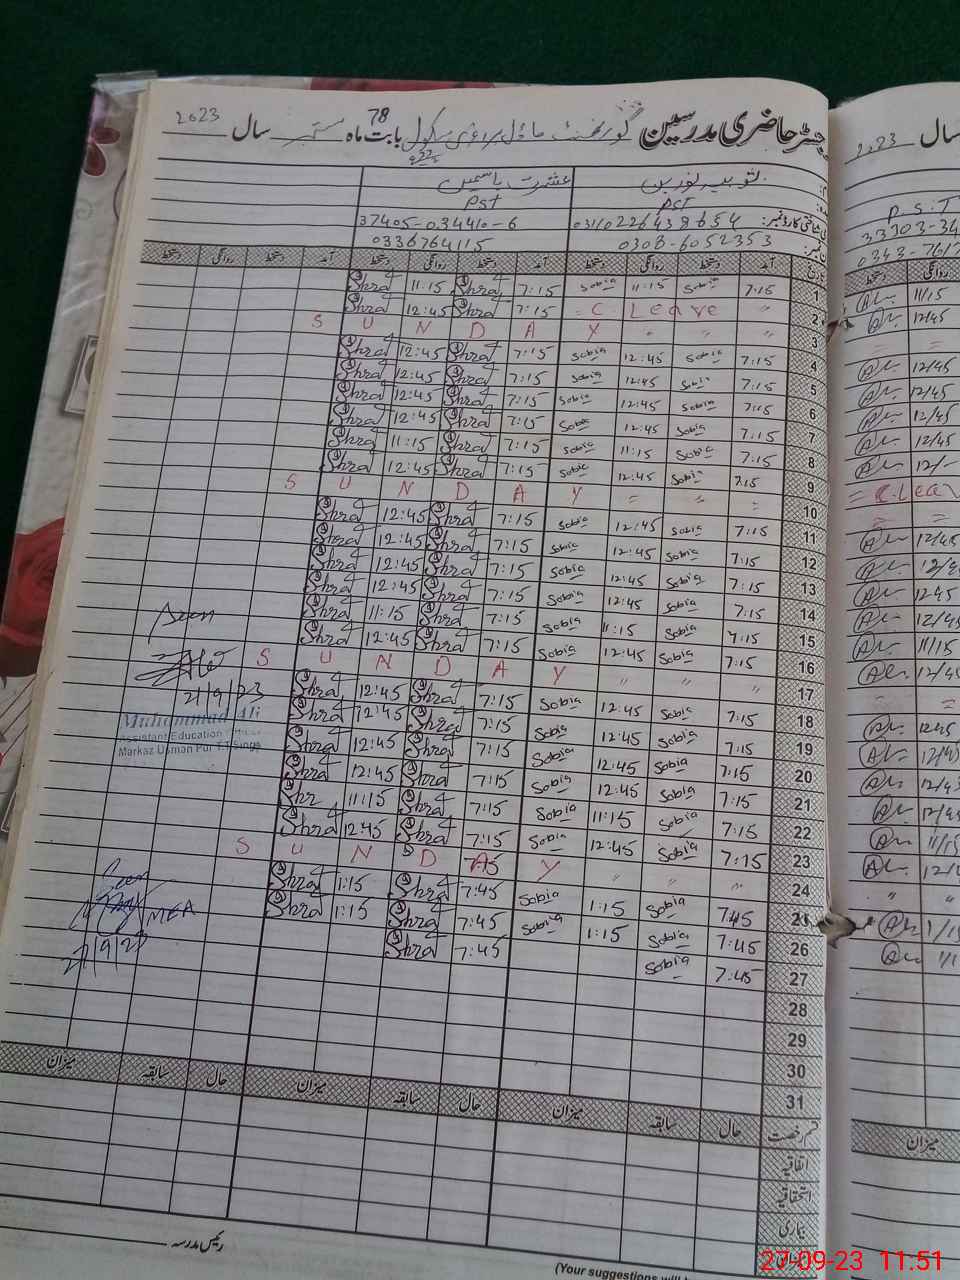 رجسٹر حاضری مدرسین گورنمنٹ ماڈل پرائمری سکول 78 بابت ماہ ستمبر سال 2023
ثوبیہ نورین عشرت یاسمین
PST PST
37405-034410-6
0308-6052353 0336764115
تاریخ آمد دستخط روانگی دستخط آمد دستخط روانگی دستخط آمد دستخط روانگی دستخط
1 7:15 Sobia 11:15 Sobia 7:15 Shrat 11:15 Shrat
2 " " C. Leave = 7:15 Shrat 12:45 Shrat
3 " " " S U N D A Y
4 7:15 Sobia 12:45 Sobia 7:15 Shrat 12:45 Shrat
5 7:15 Sobia 12:45 Sobia 7:15 Shrat 12:45 Shrat
6 7:15 Sobia 12:45 Sobia 7:15 Shrat 12:45 Shrat
7 7:15 Sobia 12:45 Sobia 7:15 Shrat 12:45 Shrat
8 7:15 Sobia 11:15 Sobia 7:15 Shrat 11:15 Shrat
9 7:15 Sobia 12:45 Sobia 7:15 Shrat 12:45 Shrat
10 " " = S U N D A Y
11 7:15 Sobia 12:45 Sobia 7:15 Shrat 12:45 Shrat
12 7:15 Sobia 12:45 Sobia 7:15 Shrat 12:45 Shrat
13 7:15 Sobia 12:45 Sobia 7:15 Shrat 12:45 Shrat
14 7:15 Sobia 12:45 Sobia 7:15 Shrat 12:45 Shrat
15 7:15 Sobia 11:15 Sobia 7:15 Shrat 11:15 Shrat
16 7:15 Sobia 12:45 Sobia 7:15 Shrat 12:45 Shrat
17 " " " S U N D A Y
18 7:15 Sobia 12:45 Sobia 7:15 Shrat 12:45 Shrat
19 7:15 Sobia 12:45 Sobia 7:15 Shrat 12:45 Shrat
20 7:15 Sobia 12:45 Sobia 7:15 Shrat 12:45 Shrat
21 7:15 Sobia 12:45 Sobia 7:15 Shrat 12:45 Shrat
22 7:15 Sobia 11:15 Sobia 7:15 Shrat 11:15 Shr
23 7:15 Sobia 12:45 Sobia 7:15 Shrat 12:45 Shrat
24 " " " S U N D A Y
25 7:45 Sobia 1:15 Sobia 7:45 Shrat 1:15 Shrat
26 7:45 Sobia 1:15 Sobia 7:45 Shrat 1:15 Shrat
27 7:45 Sobia 7:45 Shrat
28
29
30
31
Seen
21/9/23
Muhammad Ali
Assistant Education
Markaz Usman Pur T.T Singh
MEA
قسم رخصت حال سابقہ میزان حال سابقہ میزان حال سابقہ میزان
اتفاقیہ
استحقاقیہ
بیماری
رئیس مدرسہ
(Your suggestions will
سال 2023
P.S.T
33303-34
0343-761
روانگی دستخط
11/15
12/45
12/45
12/45
12/45
12/45
12/-
= C. Leav
12/45
میزان
27-09-23 11.51